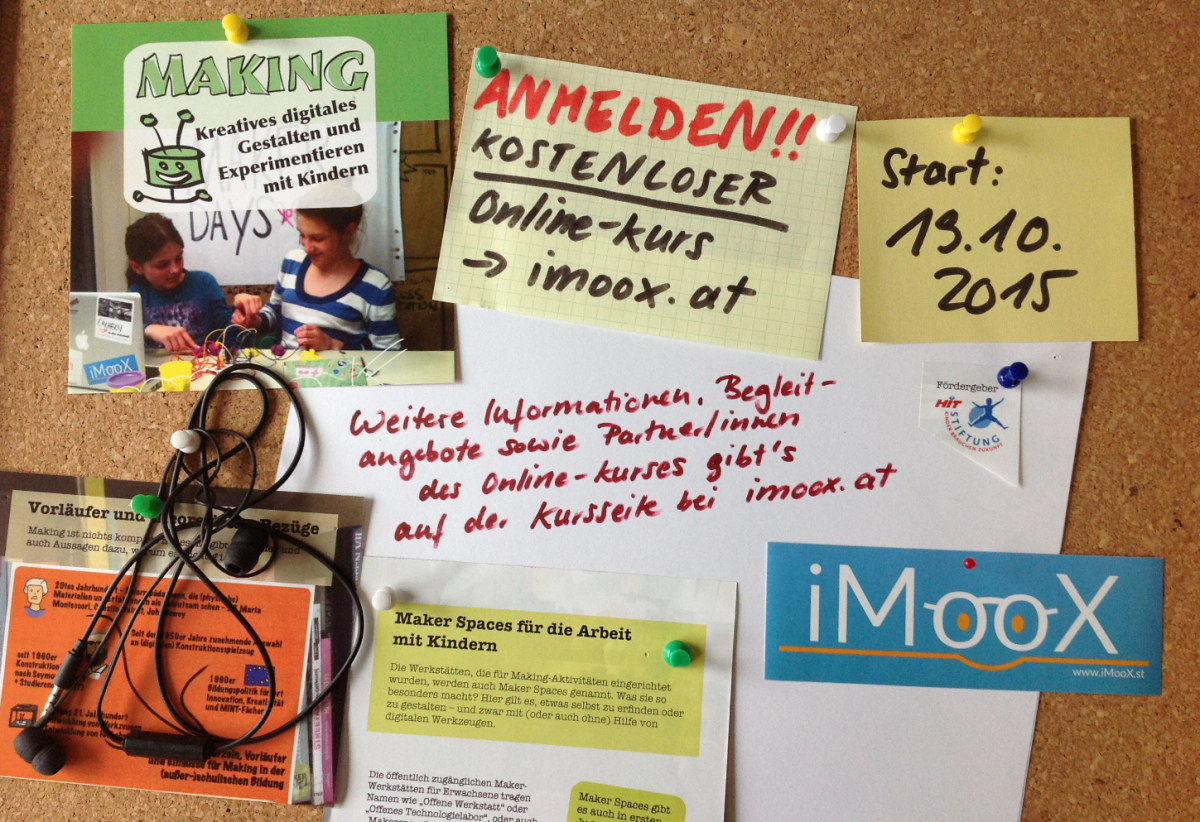 MAKING
Kreatives digitales
Gestalten und
Experimentieren
mit Kindern
DAYS
iMooX
ANMELDEN!!
KOSTENLOSER
Online-kurs
→ imoox.at
Start:
19.10.
2015
Weitere Informationen, Begleit-
angebote sowie Partner/innen
des Online-kurses gibt's
auf der Kursseite bei imoox.at
Fördergeber
HIT
STIFTUNG
KINDER BRAUCHEN ZUKUNFT
iMooX
www.iMooX.at
Vorläufer und Bezüge
Making ist nichts gibt
auch Aussagen dazu, warum es
20tes Jahrhundert
Materialien
Montessori,
Seit den zunehmende Auswahl
an Konstruktionsspielzeug
seit 1980er
Konstruktion
nach Seymour
+ Studierende
1990er
Bildungspolitik
Innovation, Kreativität
und MINT-Fächer
21. Jahrhundert
Vorläufer
und Einflüsse für Making in der
(außer-)schulischen Bildung
Maker Spaces für die Arbeit
mit Kindern
Die Werkstätten, die für Making-Aktivitäten eingerichtet
wurden, werden auch Maker Spaces genannt. Was sie so
besonders macht? Hier gilt es, etwas selbst zu erfinden oder
zu gestalten – und zwar mit (oder auch ohne) Hilfe von
digitalen Werkzeugen.
Die öffentlich zugänglichen Maker-
Werkstätten für Erwachsene tragen
Namen wie „Offene Werkstatt" oder
„Offenes Technologielabor", oder auch
Maker Spaces gibt
es auch in ersten